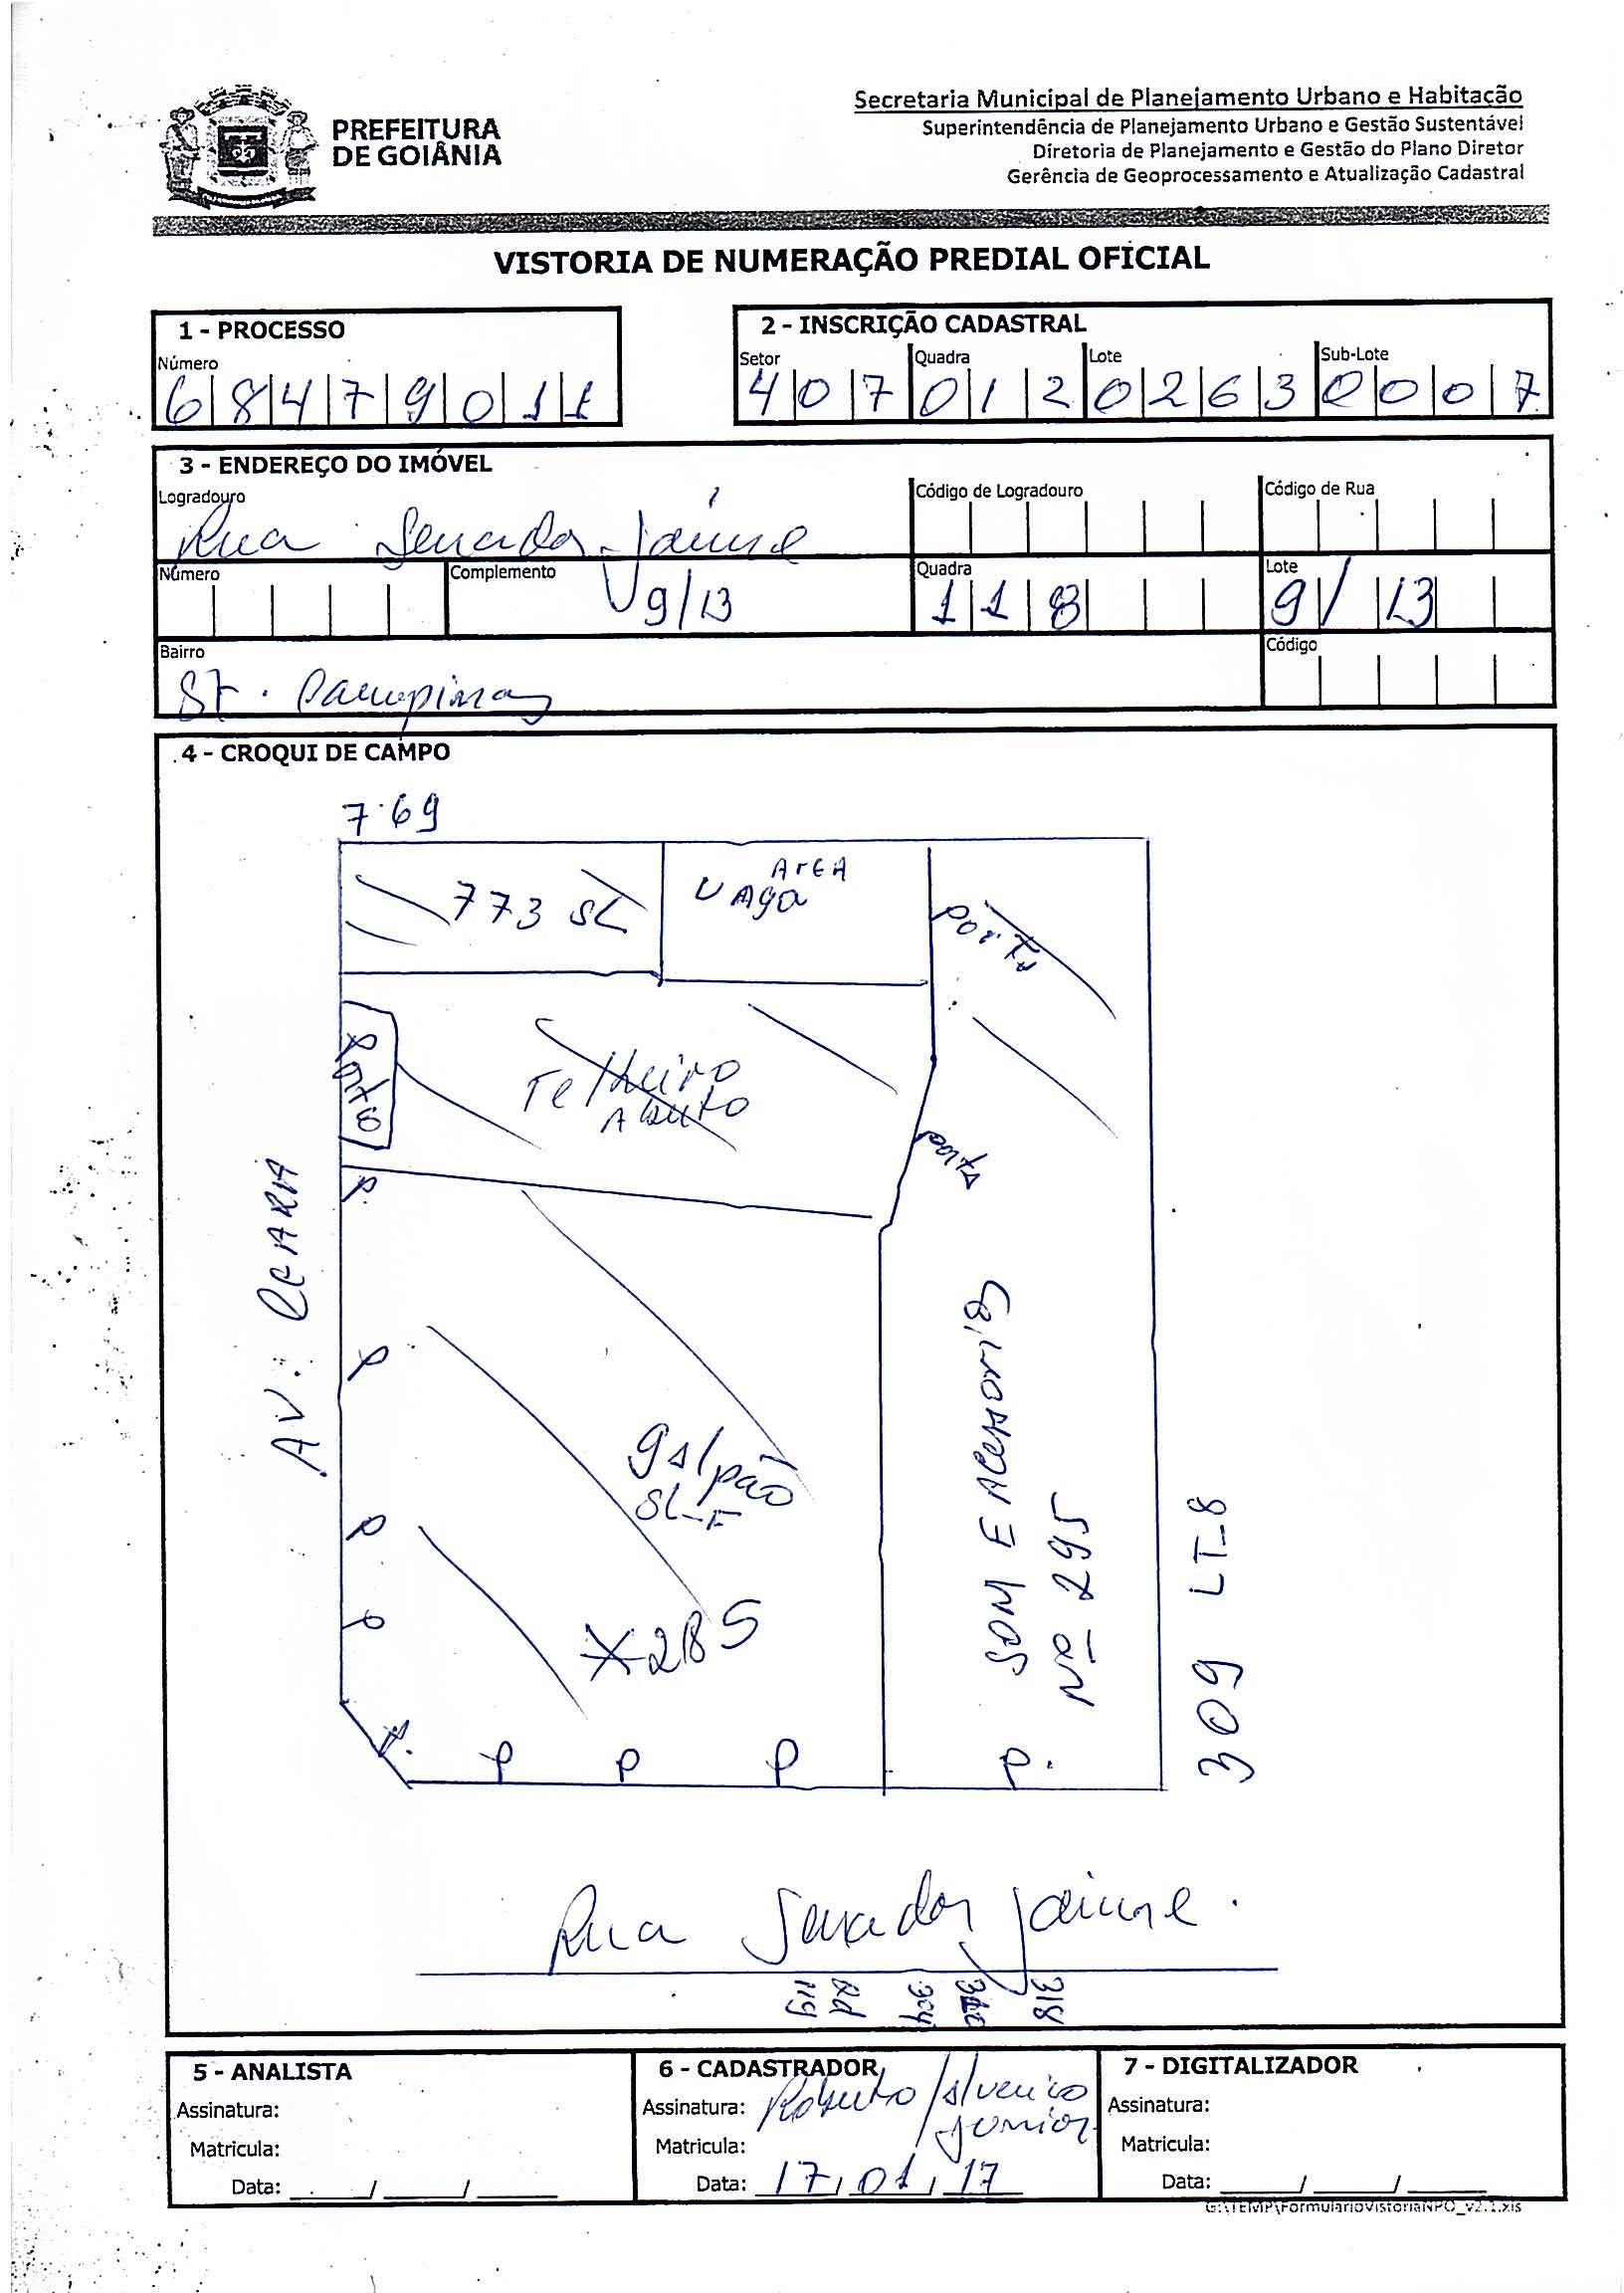 PREFEITURA
DE GOIÂNIA
Secretaria Municipal de Planejamento Urbano e Habitação
Superintendência de Planejamento Urbano e Gestão Sustentável
Diretoria de Planejamento e Gestão do Plano Diretor
Gerência de Geoprocessamento e Atualização Cadastral
VISTORIA DE NUMERAÇÃO PREDIAL OFICIAL
1 - PROCESSO
Número
68479011
2 - INSCRIÇÃO CADASTRAL
Setor Quadra Lote Sub-Lote
407 012 0263 0007
3 - ENDEREÇO DO IMÓVEL
Logradouro Código de Logradouro Código de Rua
Rua Senador Jaime
Número Complemento Quadra Lote
9/13 118 9/13
Bairro Código
St. Campinas
4 - CROQUI DE CAMPO
769
773 SL
AREA
VAga
porta
Portão
Telheiro
Aberto
porta
P.
AV. CEARÁ
P
galpão
SL-F
P
P
X285
SOM E Acessorios
Nº 295
309 LT-8
P.
P
P
P
P.
Rua Senador Jaime.
119
Qd
304
318
5 - ANALISTA
Assinatura:
Matricula:
Data: ___/___/___
6 - CADASTRADOR
Assinatura: Roberto
Junior
Matricula:
Data: 17/01/17
7 - DIGITALIZADOR
Assinatura:
Matricula:
Data: ___/___/___
G:\TEMP\FormularioVistoriaNPO_v2.1.xls